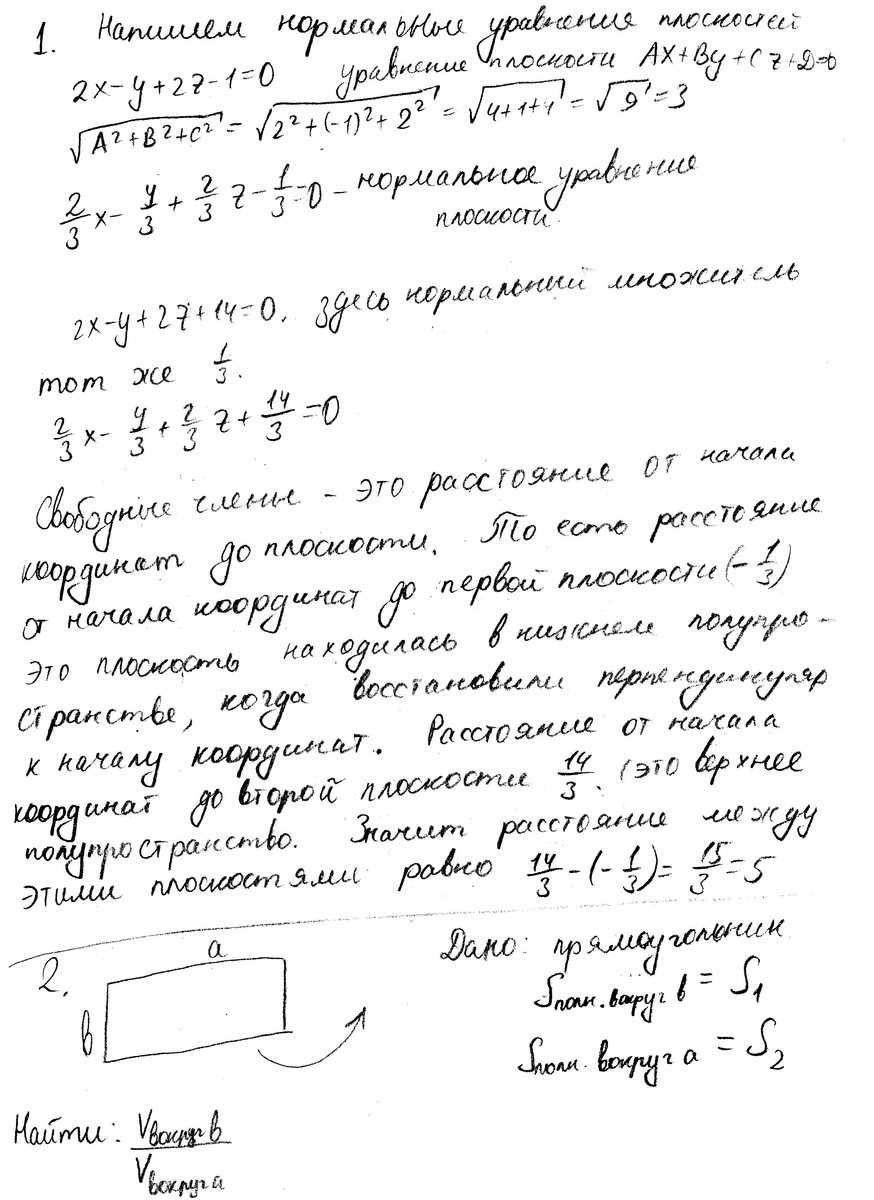 1. Напишем нормальные уравнение плоскостей
2x-y+2z-1=0 уравнение плоскости Ax+By+Cz+D=0
√(A²+B²+C²) = √(2²+(-1)²+2²) = √(4+1+4) = √9 = 3
2/3 x - y/3 + 2/3 z - 1/3 = 0 - нормальное уравнение
плоскости.
2x-y+2z+14=0. Здесь нормальный множитель
тот же 1/3.
2/3 x - y/3 + 2/3 z + 14/3 = 0
Свободные члены - это расстояние от начала
координат до плоскости. То есть расстояние
от начала координат до первой плоскости (-1/3)
Это плоскость находилась в нижнем полупро-
странстве, когда восстановили перпендикуляр
к началу координат. Расстояние от начала
координат до второй плоскости 14/3. (это верхнее
полупространство. Значит расстояние между
этими плоскостями равно 14/3 - (-1/3) = 15/3 = 5
2. a
в
Дано: прямоугольник
Sполн. вокруг в = S1
Sполн. вокруг а = S2
Найти: Vвокруг в / Vвокруг а